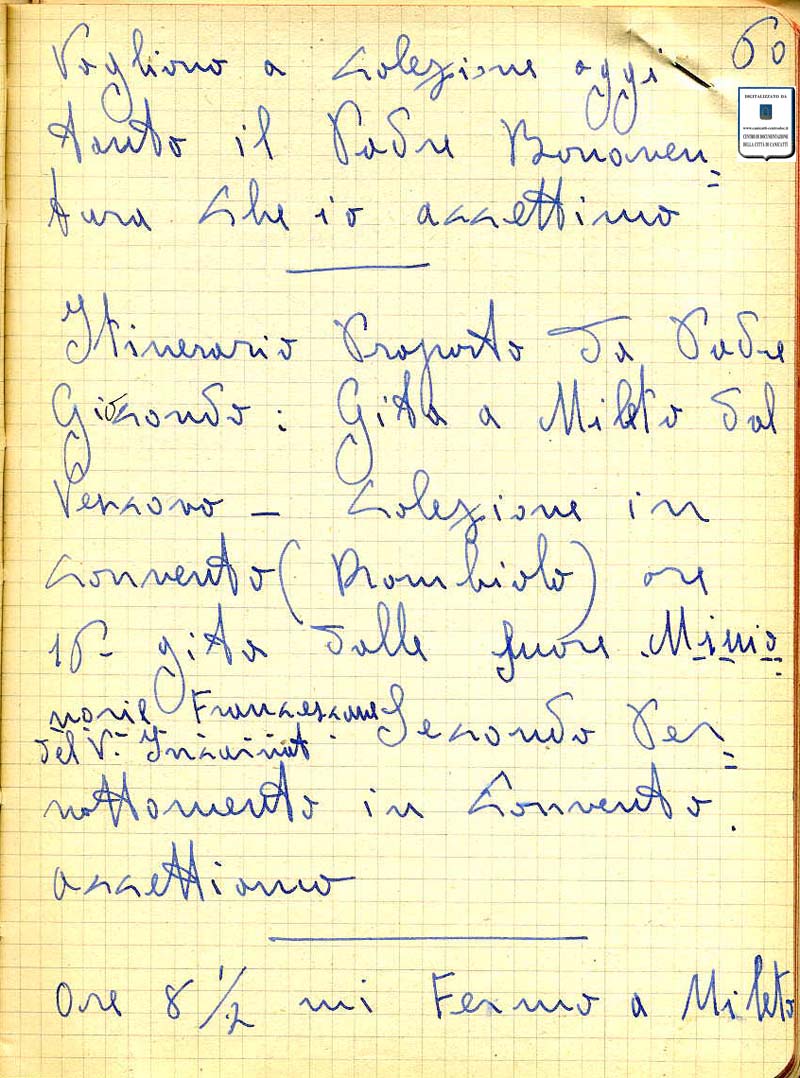 60
DIGITALIZZATO DA
www.canicatti-centrodoc.it
CENTRO DI DOCUMENTAZIONE
DELLA CITTÀ DI CANICATTÌ
Vogliono a colezione oggi
tanto il Padre Bonaven=
tura che io accettimo
Itinerario Proposto da Padre
Giocondo: Gita a Mileto dal
Vescovo – colezione in
convento (Rombiolo) ore
16 – gita dalle suore Missio
narie Francescane
del V. Incarnat.
Secondo Per=
nottomento in Convento.
accettiamo
Ore 8 1/2 mi Fermo a Mileto